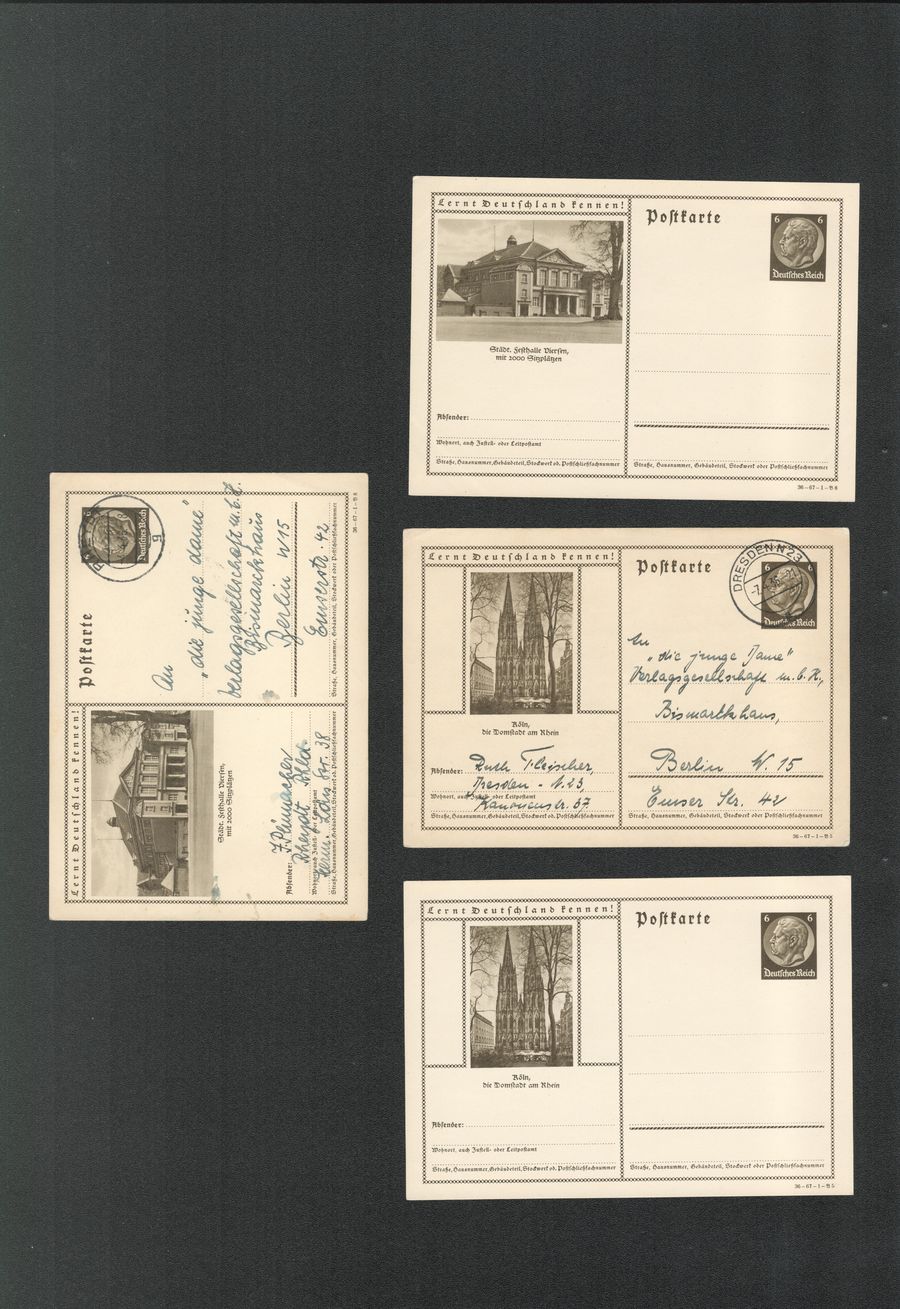 Lernt Deutschland kennen!
Städt. Festhalle Viersen,
mit 2000 Sitzplätzen
Absender:
Wohnort, auch Zustell- oder Leitpostamt
Straße, Hausnummer, Gebäudeteil, Stockwerk od. Postschließfachnummer
Postkarte
6 6
Deutsches Reich
Straße, Hausnummer, Gebäudeteil, Stockwerk oder Postschließfachnummer
36-67-1-B6
Lernt Deutschland kennen!
Städt. Festhalle Viersen,
mit 2000 Sitzplätzen
Absender:
Rheydt
Wohnort, auch Zustell- oder Leitpostamt
Str. 38
Straße, Hausnummer, Gebäudeteil, Stockwerk od. Postschließfachnummer
Postkarte
6 6
Deutsches Reich
g
An
„die junge dame"
Verlagsgesellschaft m.b.H.
Bismarckhaus
Berlin W15
Emserstr. 42
Straße, Hausnummer, Gebäudeteil, Stockwerk oder Postschließfachnummer
36-67-1-B6
Lernt Deutschland kennen!
Köln,
die Domstadt am Rhein
Absender: Ruth Fleischer,
Dresden - N.23,
Wohnort, auch Zustell- oder Leitpostamt
Kanonenstr. 67
Straße, Hausnummer, Gebäudeteil, Stockwerk od. Postschließfachnummer
Postkarte
DRESDEN N23
6
Deutsches Reich
An
„die junge Dame"
Verlagsgesellschaft m.b.H.,
Bismarckhaus,
Berlin W.15
Emser Str. 42
Straße, Hausnummer, Gebäudeteil, Stockwerk oder Postschließfachnummer
36-67-1-B5
Lernt Deutschland kennen!
Köln,
die Domstadt am Rhein
Absender:
Wohnort, auch Zustell- oder Leitpostamt
Straße, Hausnummer, Gebäudeteil, Stockwerk od. Postschließfachnummer
Postkarte
6 6
Deutsches Reich
Straße, Hausnummer, Gebäudeteil, Stockwerk oder Postschließfachnummer
36-67-1-B5